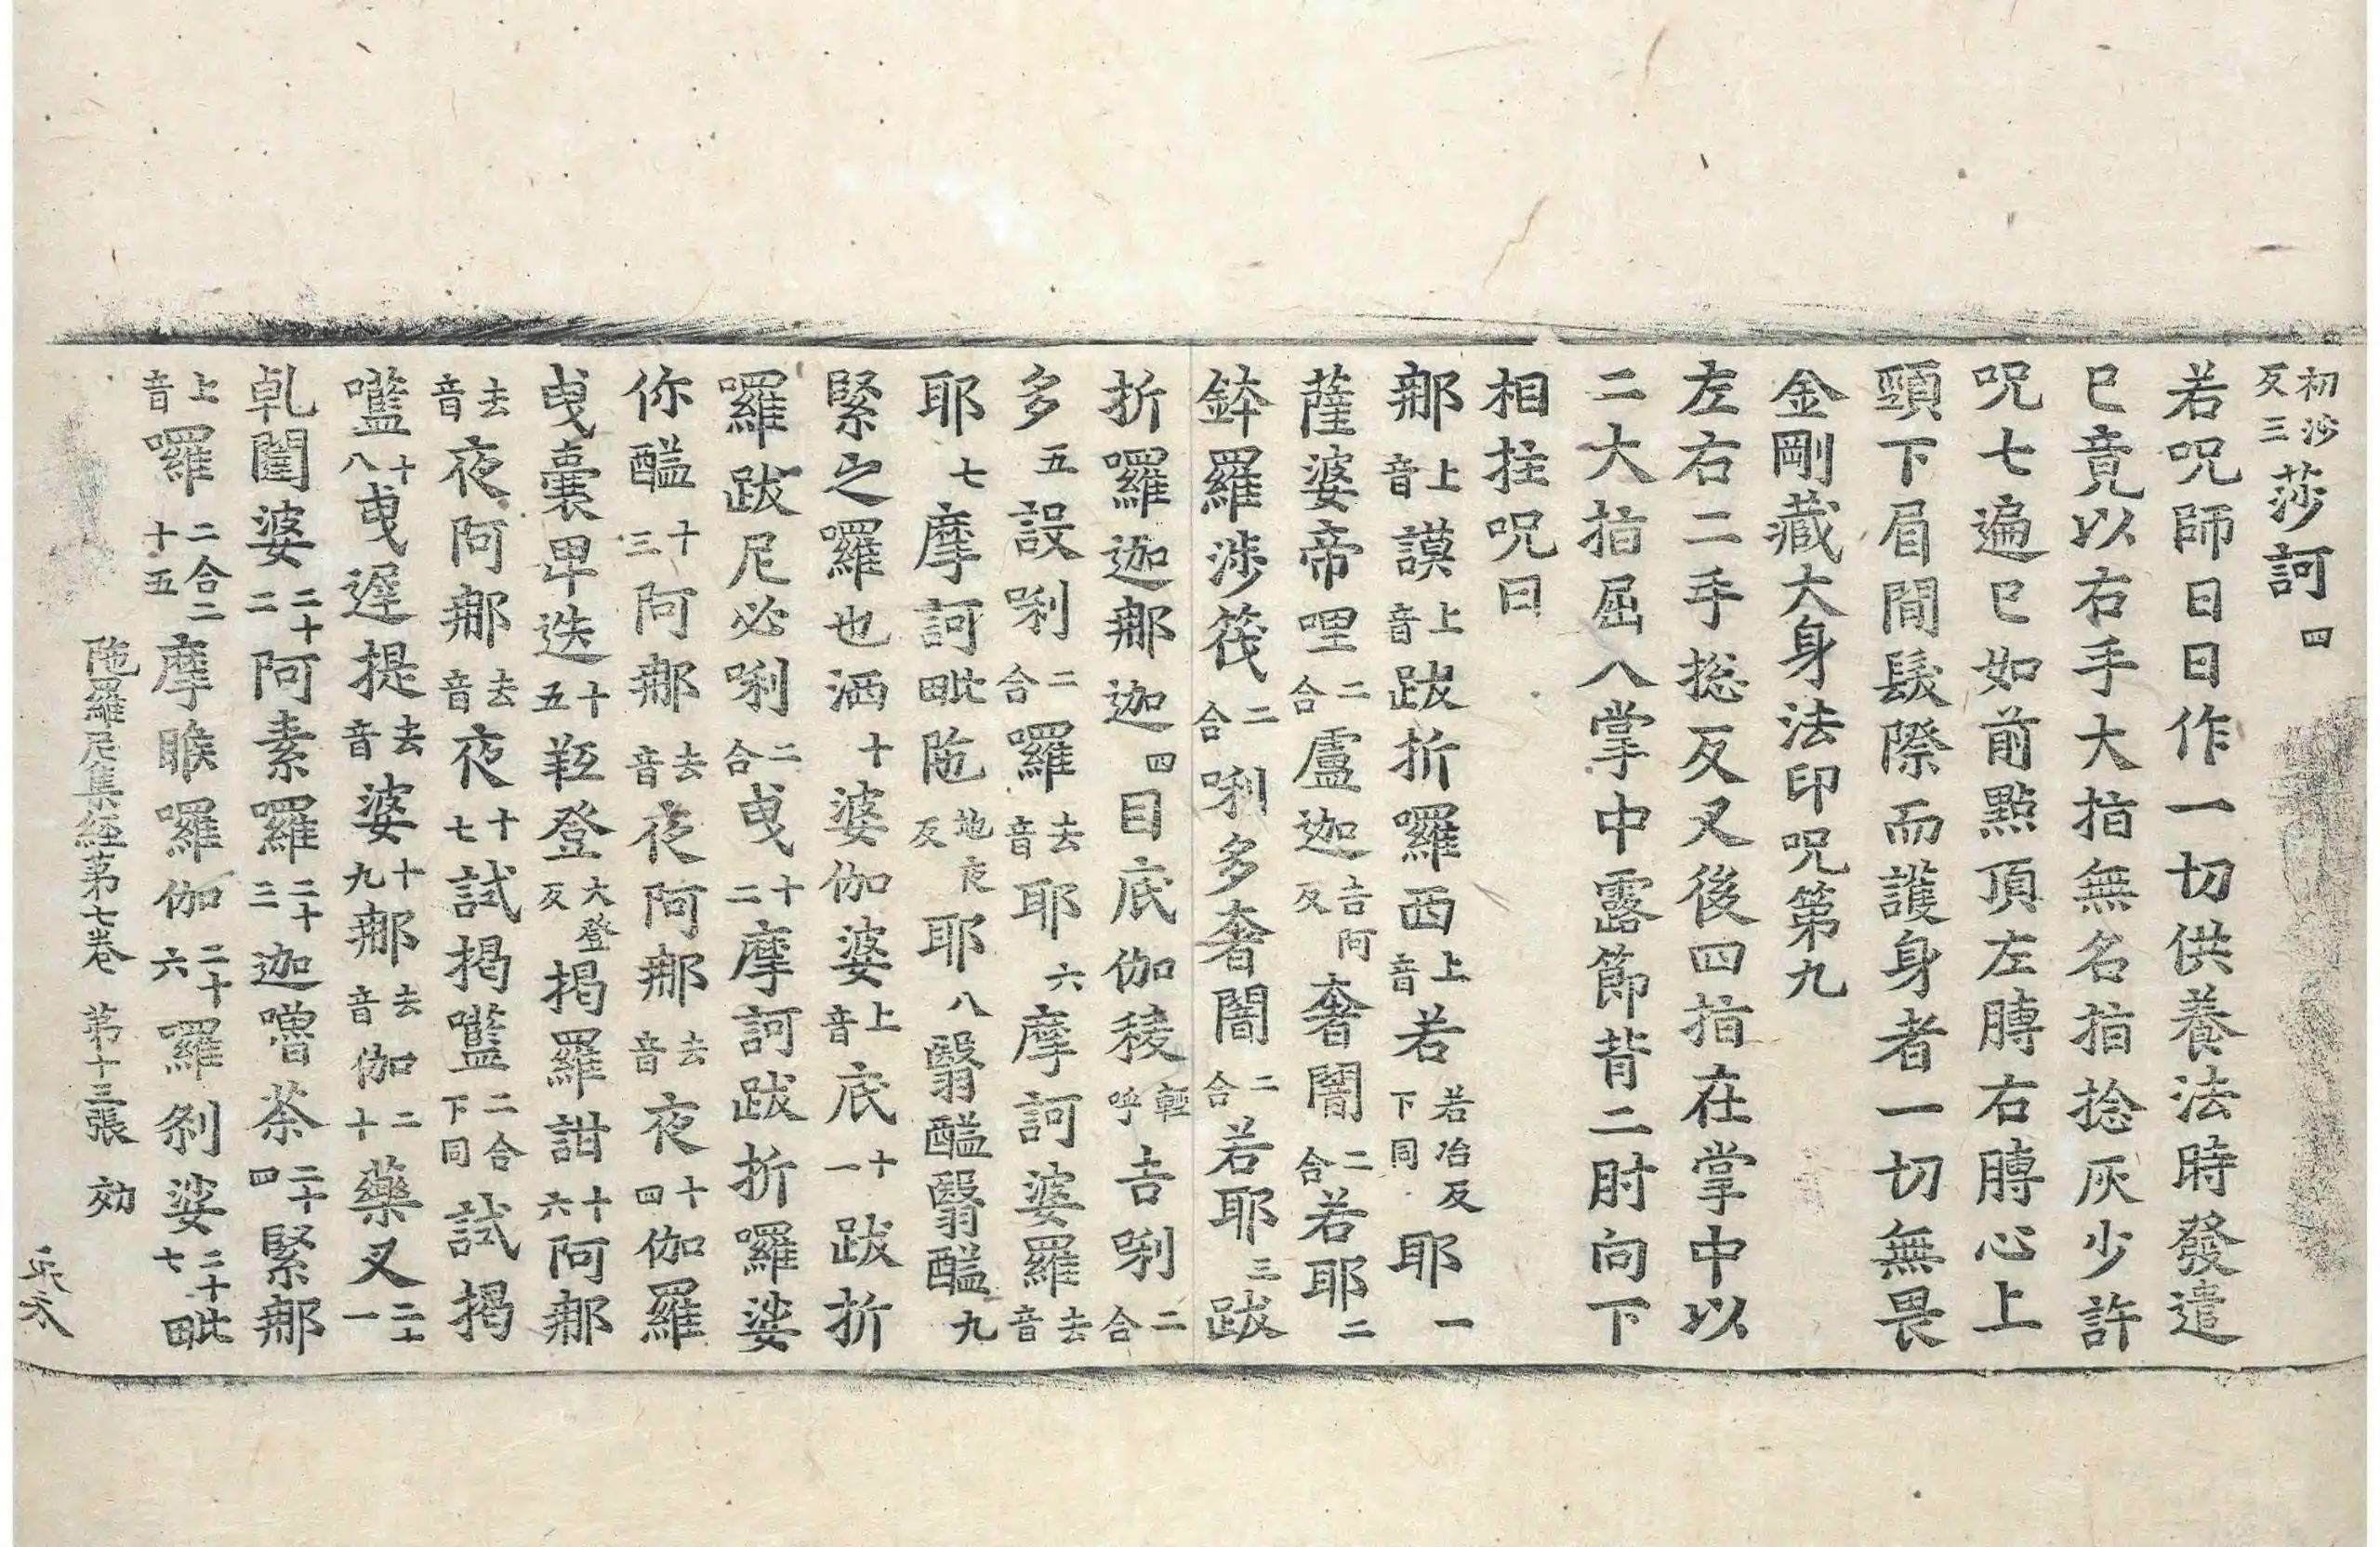 初沙反三莎訶四
若呪師日日作一切供養法時發遣
已竟以右手大指無名指捻灰少許
呪七遍已如前點頂左膊右膊心上
頸下眉間髮際而護身者一切無畏
金剛藏大身法印呪第九
左右二手捴反叉後四指在掌中以
二大指屈八掌中露節背二肘向下
相拄呪曰
那上音謨上音跋折囉西上音若若冶反下同耶一
薩婆帝哩二合盧迦吉阿反奢闇二合若耶二
鉢羅涉筏二合唎多奢闇二合若耶三跋
折囉迦那迦四目底伽稜輕呼吉唎二合
多五設唎二合羅去音耶六摩訶婆羅去音
耶七摩訶毗陁地夜反耶八翳醯翳醯九
緊之囉也洒十婆伽婆上音底十一跋折
囉跋尼必唎二合曳十二摩訶跋折囉娑
你醯十三阿那去音夜阿那去音夜十四伽羅
曳囊卑迭十五䩭登大登反揭羅詌十六阿那
去音夜阿那去音夜十七試揭㘕二合下同試揭
㘕十八曳遲提去音婆十九那去音伽二十藥叉二十一
乹闥婆二十二阿素羅二十三迦嚕茶二十四緊那
上音囉二合二十五摩睺囉伽二十六羅剎娑二十七毗
陁羅尼集経第七卷 第十三張 効